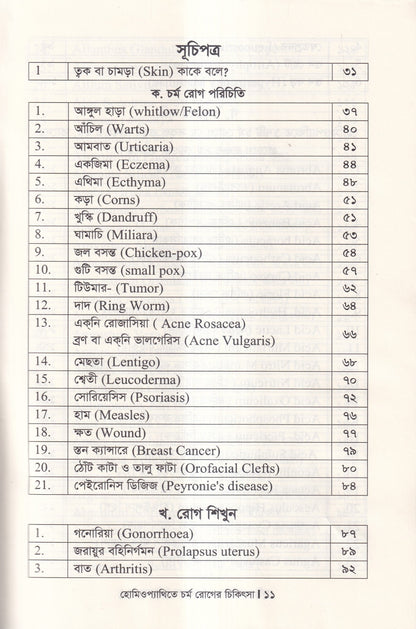 সূচিপত্র
1 ত্বক বা চামড়া (Skin) কাকে বলে? ৩১
ক. চর্ম রোগ পরিচিতি
1. আঙ্গুল হাড়া (whitlow/Felon) ৩৭
2. আঁচিল (Warts) ৪০
3. আমবাত (Urticaria) ৪১
4. একজিমা (Eczema) ৪৪
5. এথিমা (Ecthyma) ৪৮
6. কড়া (Corns) ৫১
7. খুস্কি (Dandruff) ৫১
8. ঘামাচি (Miliara) ৫৩
9. জল বসন্ত (Chicken-pox) ৫৪
10. গুটি বসন্ত (small pox) ৫৭
11. টিউমার- (Tumor) ৬২
12. দাদ (Ring Worm) ৬৪
13. এক্‌নি রোজাসিয়া ( Acne Rosacea)
ব্রণ বা এক্‌নি ভালগেরিস (Acne Vulgaris) ৬৬
14. মেছতা (Lentigo) ৬৮
15. শ্বেতী (Leucoderma) ৭০
16. সোরিয়েসিস (Psoriasis) ৭২
17. হাম (Measles) ৭৬
18. ক্ষত (Wound) ৭৭
19. স্তন ক্যান্সারে (Breast Cancer) ৭৯
20. ঠোঁট কাটা ও তালু ফাটা (Orofacial Clefts) ৮০
21. পেইরোনিস ডিজিজ (Peyronie's disease) ৮৪
খ. রোগ শিখুন
1. গনোরিয়া (Gonorrhoea) ৮৭
2. জরায়ুর বহির্নির্গমন (Prolapsus uterus) ৮৯
3. বাত (Arthritis) ৯২
হোমিওপ্যাথিতে চর্ম রোগের চিকিৎসা । ১১